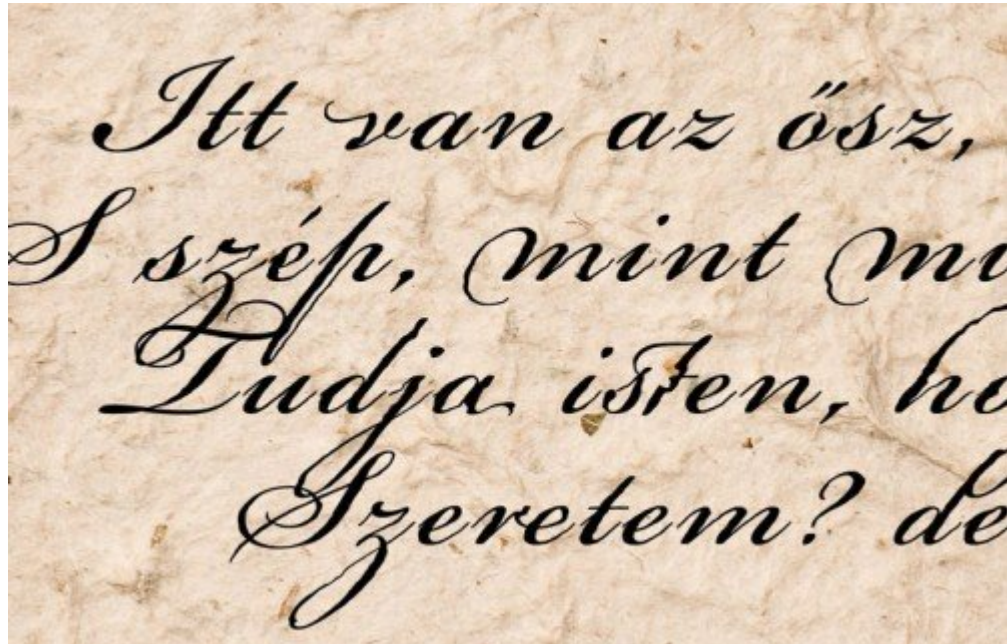 Itt van az ősz,
S szép, mint mi
Tudja isten, h
Szeretem? de